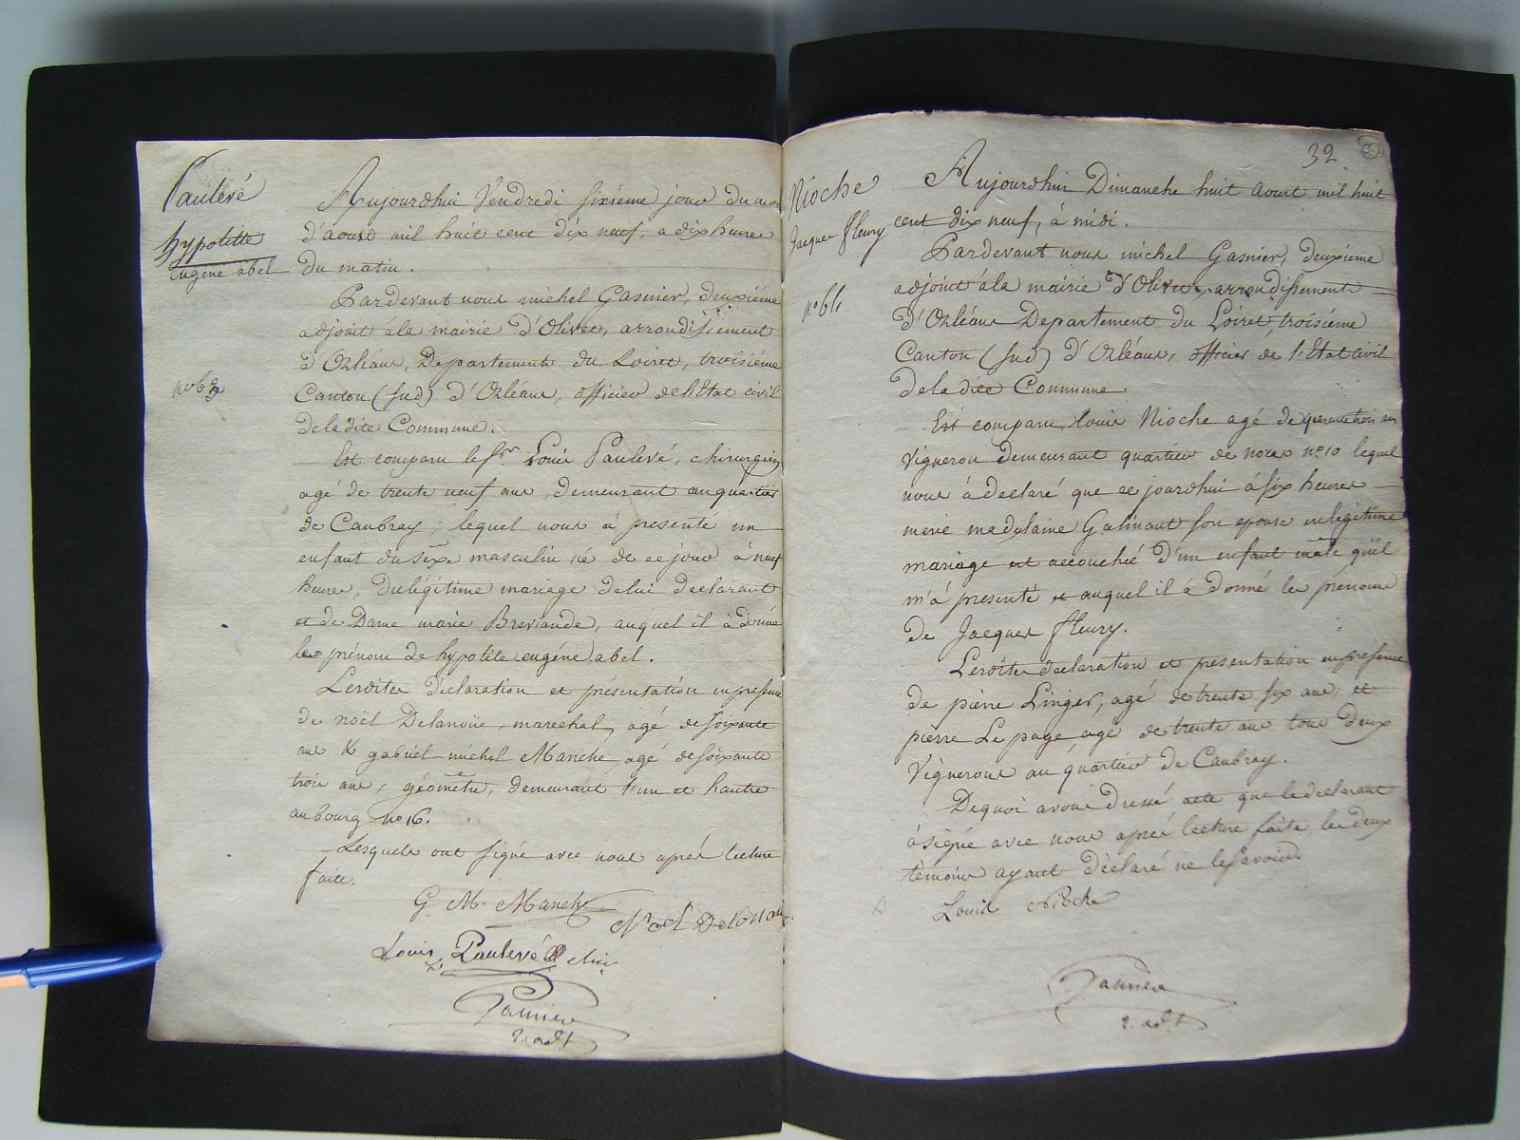 Paulevé
hypolitte
eugene abel
no 63
Aujourdhui Vendredi sixiéme jour du mois
d'aoust mil huit cent dix neuf, a dix heures
du matin.
Pardevant nous michel Gasnier, deuxiéme
adjoint à la mairie d'Olivet, arrondissement
d'Orléans, Departement du Loiret, troisiéme
Canton (sud) d'Orléans, officier de l'Etat civil
de la dite Commune.
Est comparu le sr. Louis Paulevé, chirurgien
agé de trente neuf ans, demeurant au quartier
de Caubray, lequel nous à presenté un
enfant du sexe masculin né de ce jour à neuf
heures, du légitime mariage de lui declarant
et de Dame marie Breviande, auquel il à donné
les prénoms de hypolite eugéne abel.
Lesdites déclaration et présentation en presence
de noël Delanoue, marechal, agé de soixante
ans & gabriel michel Manche agé de soixante
trois ans, géomètre, demeurant l'un et l'autre
au bourg no 16.
Lesquels ont signé avec nous aprés lecture
faite.
G. M. Manche
Louis Paulevé chir
Gasnier
2. adjt
32
Nioche
Jacques fleury
no 64
Aujourdhui Dimanche huit aout mil huit
cent dix neuf, à midi.
Pardevant nous michel Gasnier, deuxiéme
adjoint à la mairie d'Olivet, arrondissement
d'Orléans Departement du Loiret, troisiéme
Canton (sud) d'Orléans, officier de l'Etat civil
de la dite Commune
Est comparu Louis Nioche agé de quarente trois ans
vigneron demeurant quartier de noras no 10 lequel
nous à declaré que ce jourdhui à six heures
marie madelaine Gatinaut son epouse en legitime
mariage est accouchée d'un enfant mâle qu'il
m'à presenté et auquel il à donné les prénoms
de Jacques fleury.
Lesdites declaration et presentation en presence
de pierre Linger, agé de trente six ans et
pierre Le page agé de trente ans tous deux
vignerons au quartier de Caubray.
De quoi avons dressé acte que le declarant
à signé avec nous aprés lecture faite, les deux
témoins ayant déclaré ne le savoir.
Louis Nioche
Gasnier
2. adjt